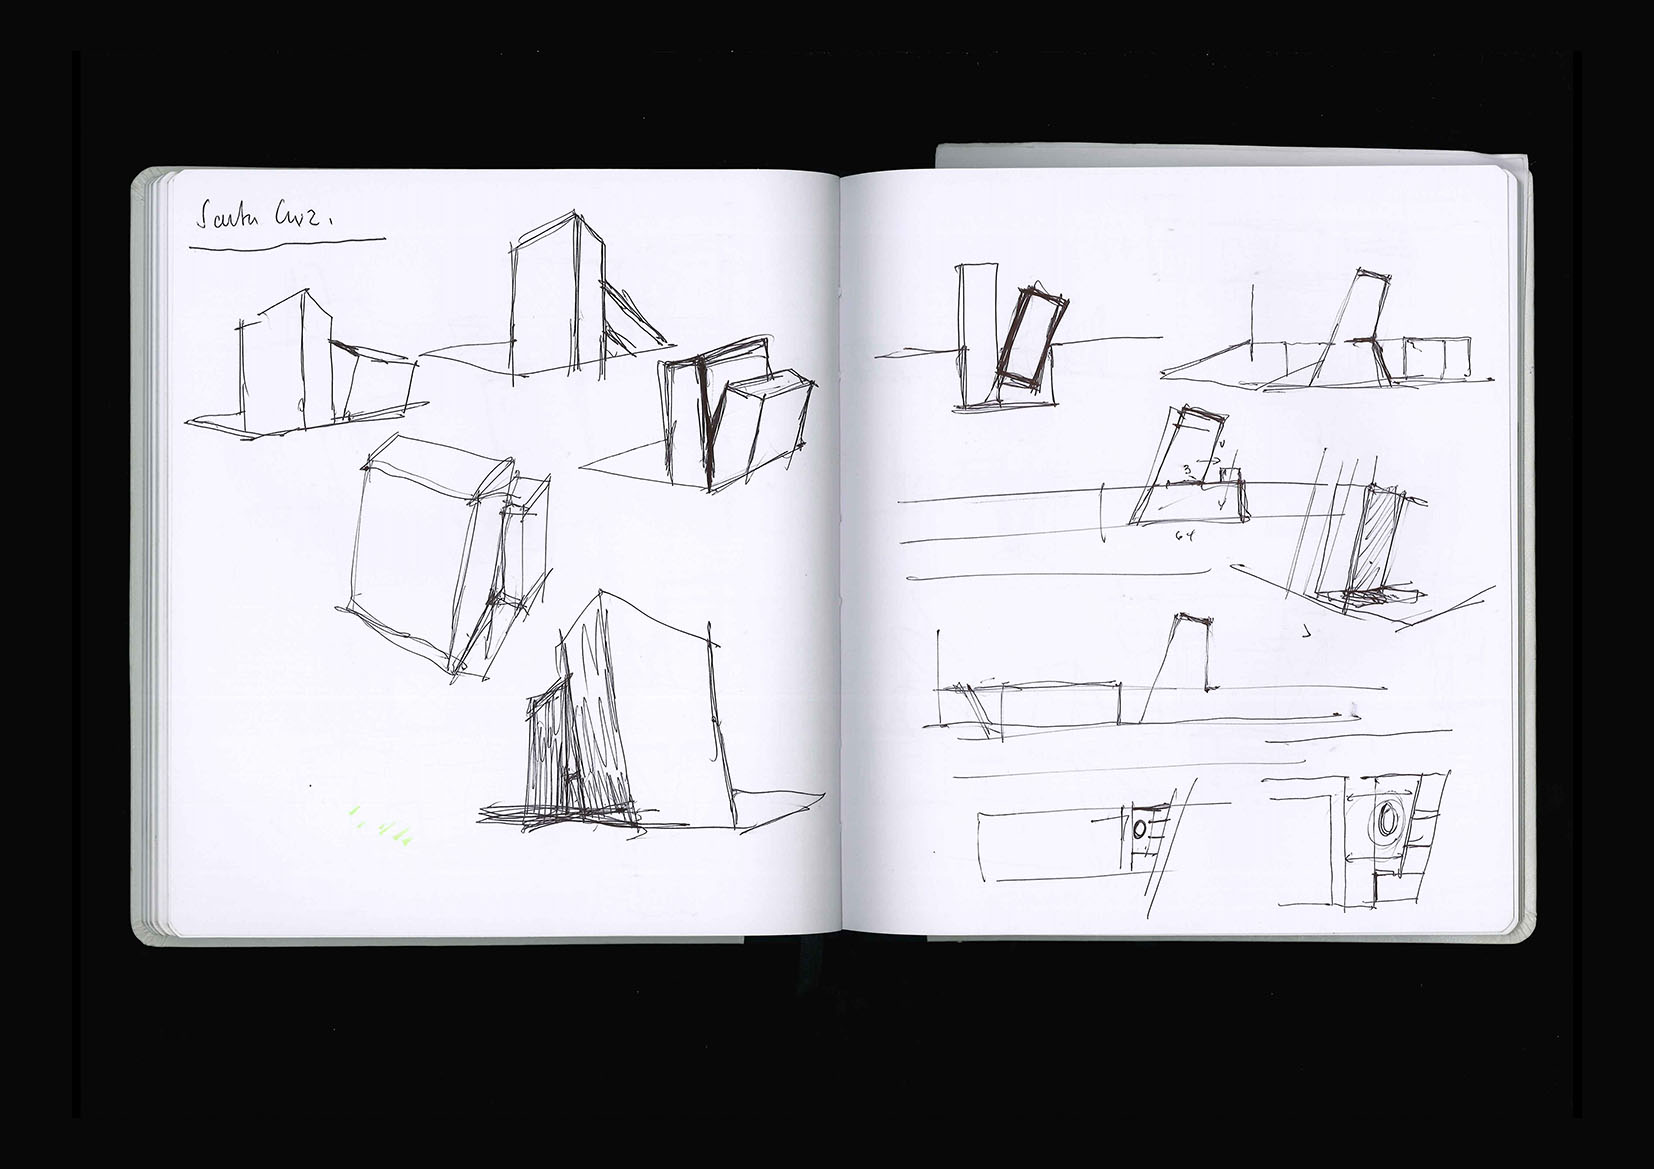 Santa Cruz.
3
64